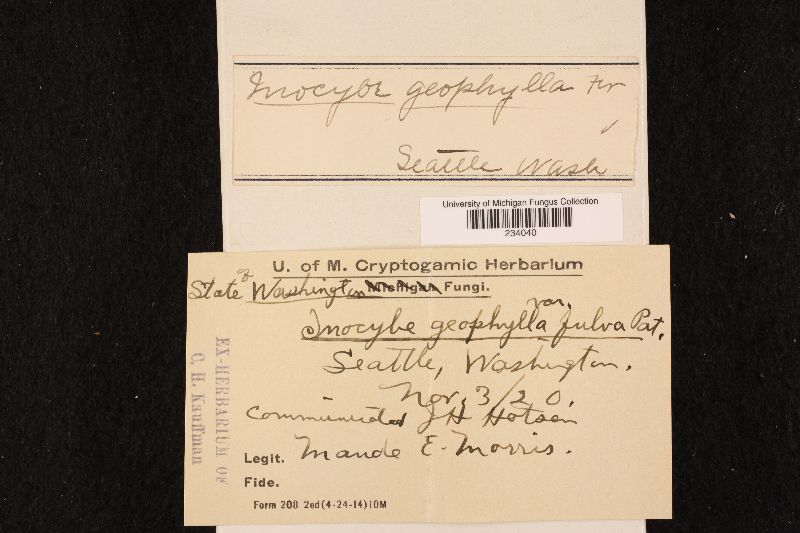 Inocybe geophylla Fr
Seattle Wash
University of Michigan Fungus Collection
234040
U. of M. Cryptogamic Herbarium
State of Washington Michigan Fungi.
Inocybe geophylla var. fulva Pat.
Seattle, Washington.
Nov. 3/20.
Communicated J H Hotson
Legit. Maude E. Morris.
Fide.
Form 208 2ed (4-24-14) 10M
EX-HERBARIUM OF
C. H. Kauffman